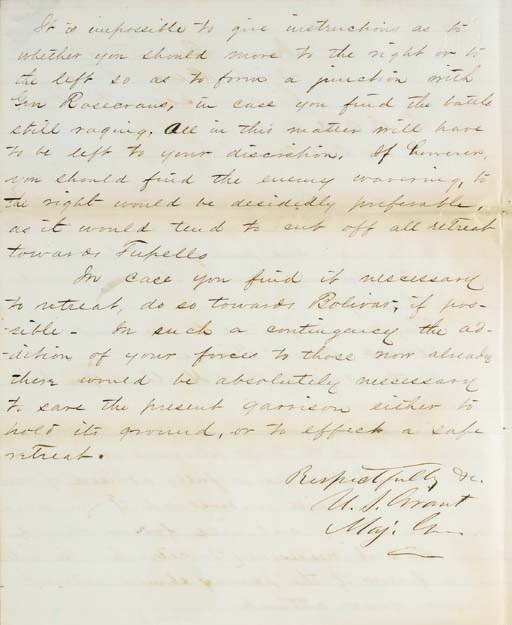 It is impossible to give instructions as to
whether you should move to the right or to
the left so as to form a junction with
Gen Rosecrans, in case you find the battle
still raging. All in this matter will have
to be left to your discretion. If however,
you should find the enemy wavering, to
the right would be desidedly preferable,
as it would tend to cut off all retreat
towards Tupello
In case you find it nescessary
to retreat, do so towards Bolivar, if pos-
sible - In such a contingency the ad-
dition of your forces to those now already
there would be absolutely nescessary
to save the present garrison either to
hold its ground, or to effect a safe
retreat.
Respectfully &c.
U. S. Grant
Maj. Gen